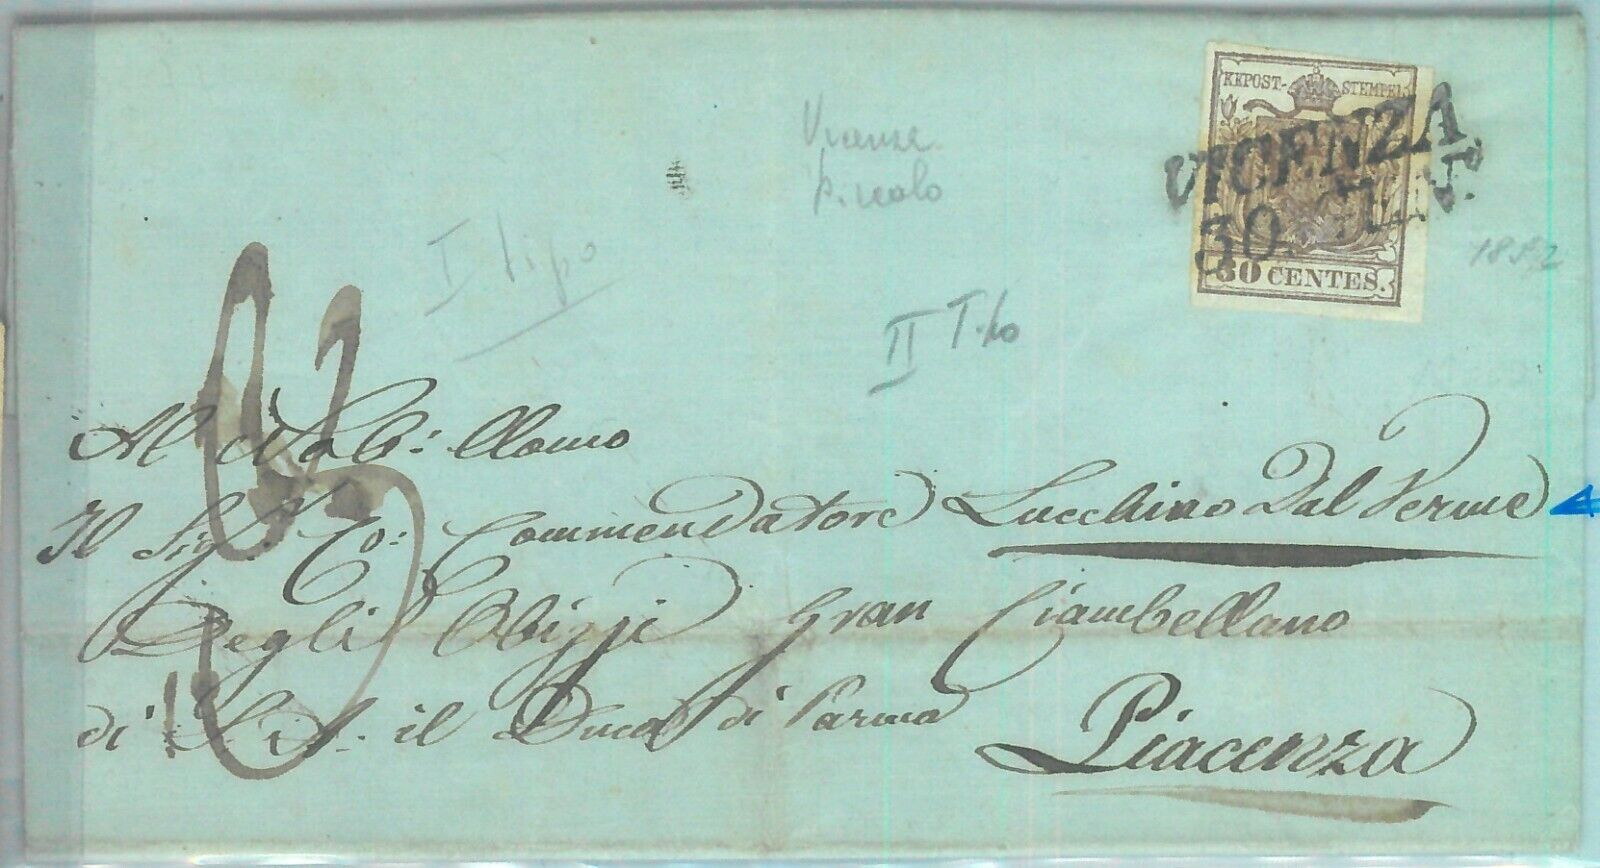 KKPOST-STEMPEL
VICENZA
30.
30 CENTES.
1852
Vicenza
piccolo
I tipo
II Tipo
Al Nobil: Uomo
Il Sig.r Co: Commendatore Lucchino Dal Verme
Degli Obizzi Gran Ciambellano
di S. A. il Duca di Parma
Piacenza